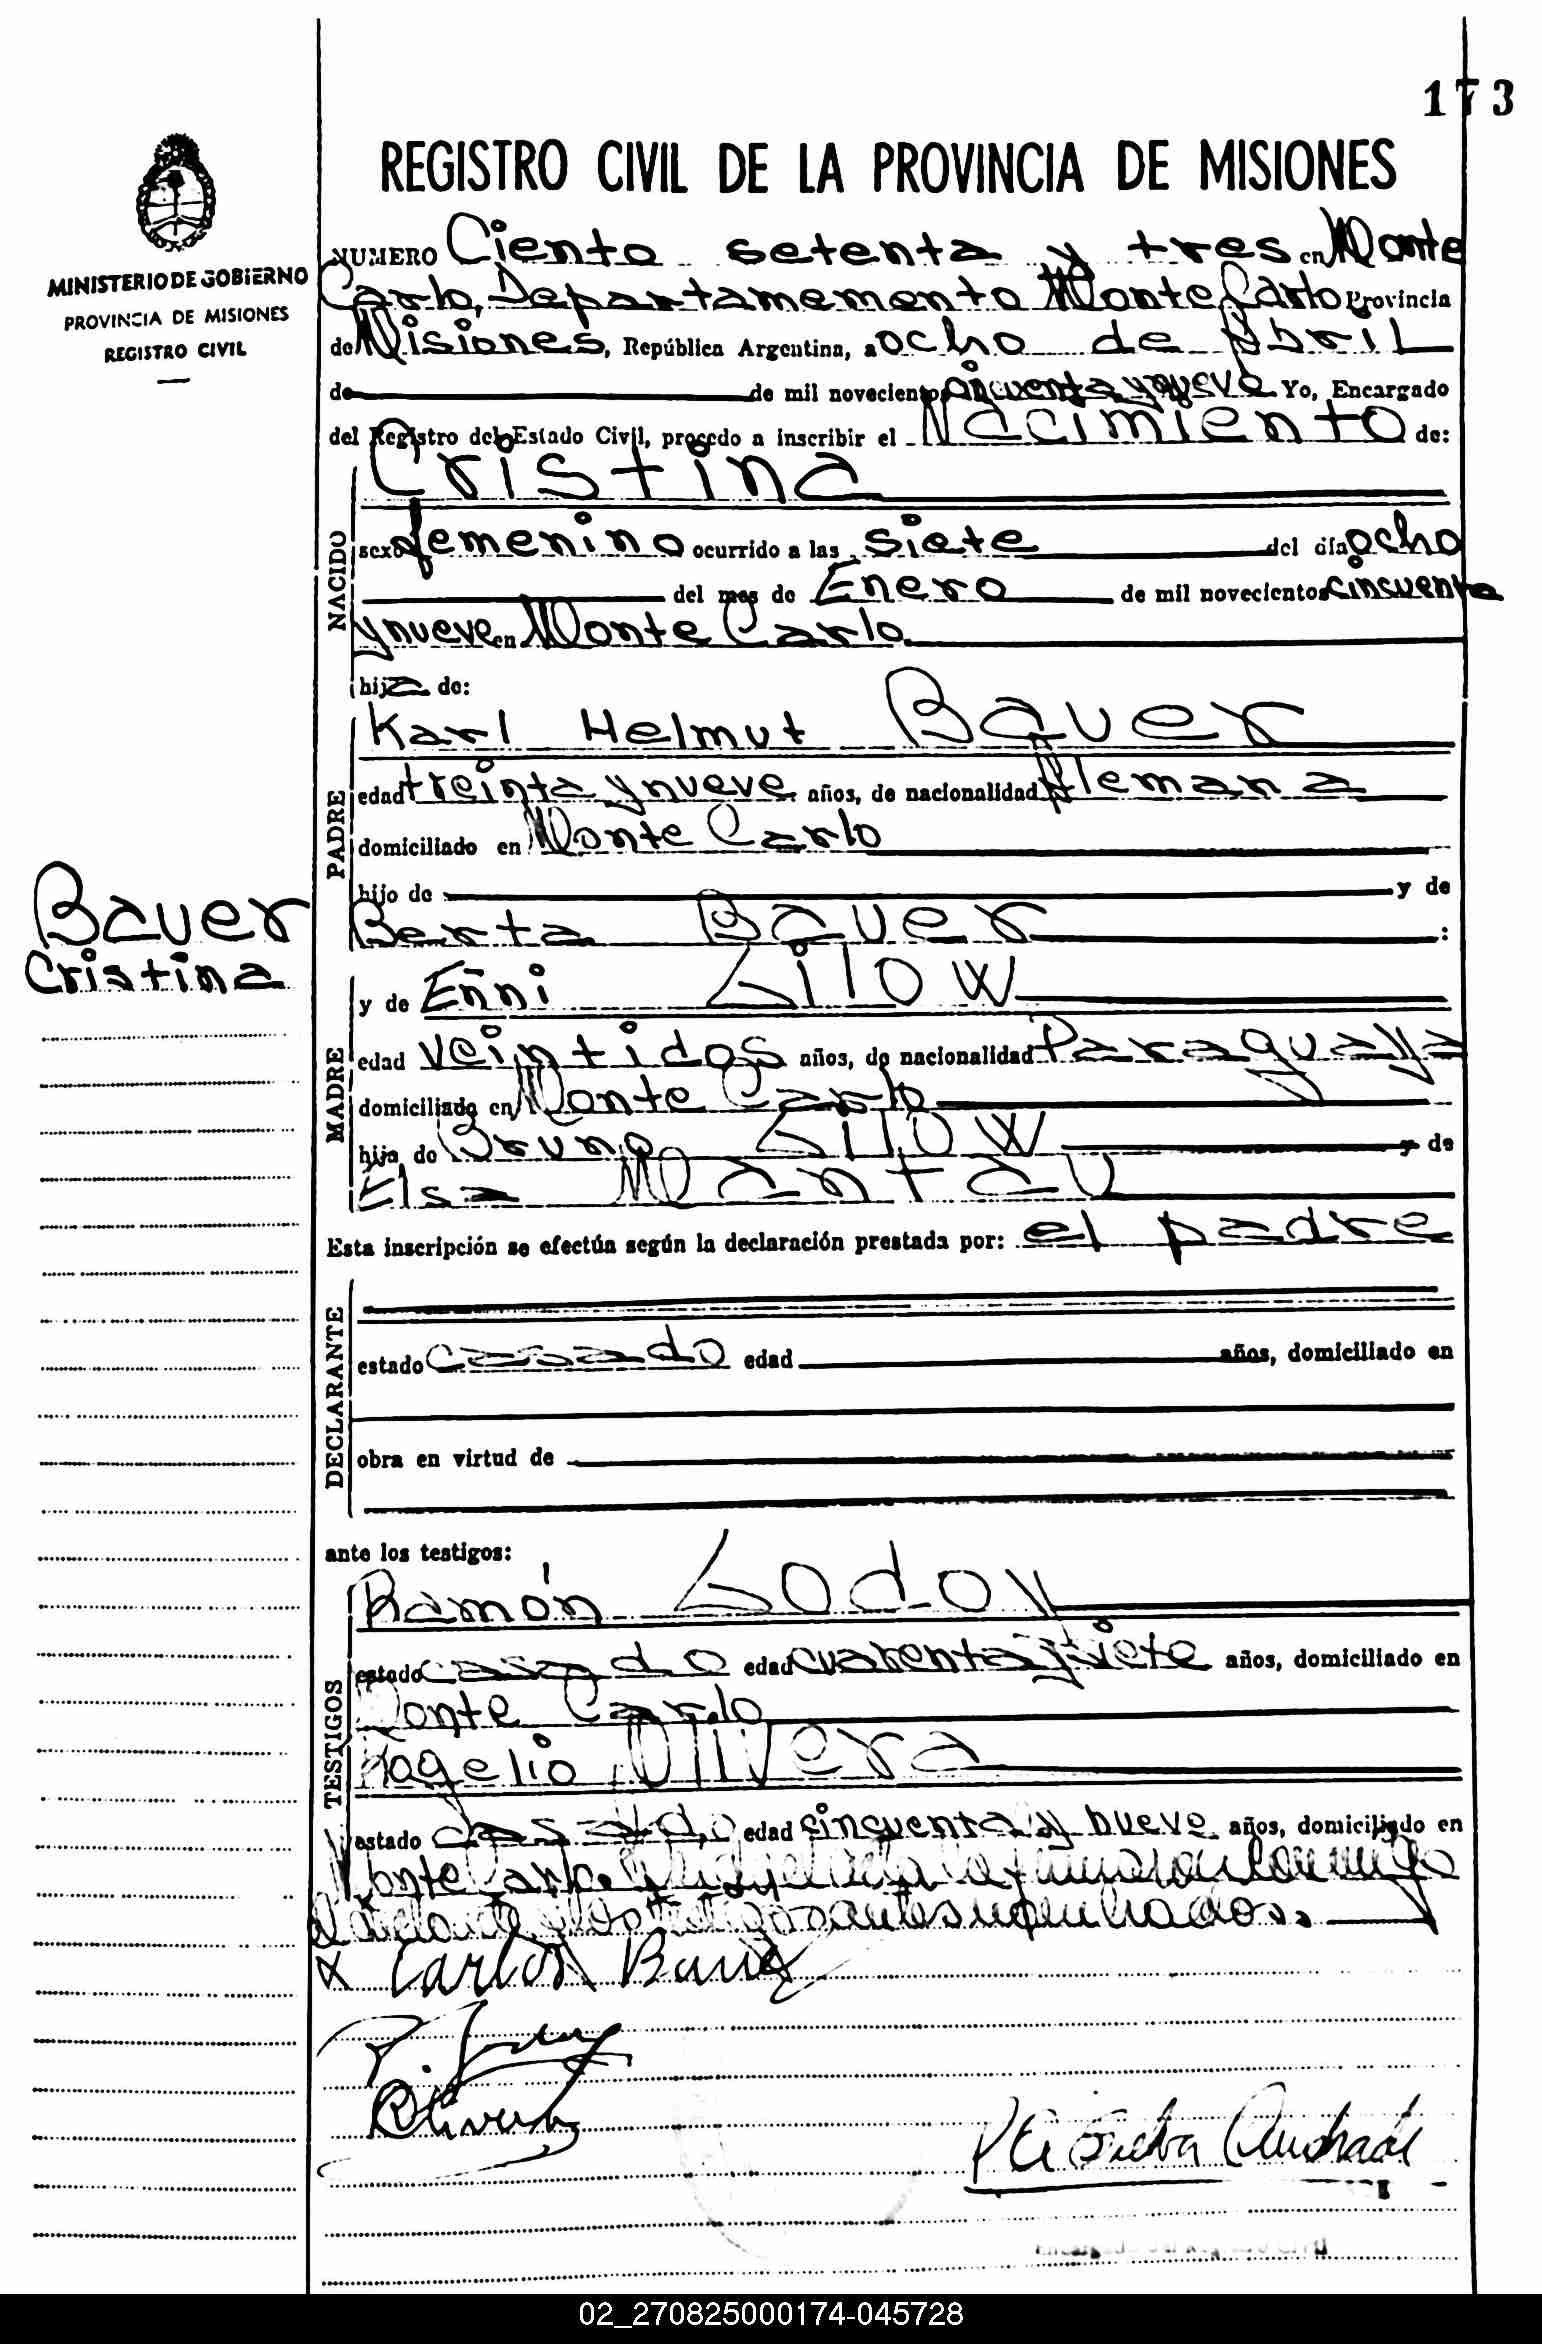 173
REGISTRO CIVIL DE LA PROVINCIA DE MISIONES
MINISTERIO DE GOBIERNO
PROVINCIA DE MISIONES
REGISTRO CIVIL
NUMERO Ciento setenta y tres en Monte
Carlo, Departamemento Monte Carlo Provincia
de Misiones, República Argentina, a ocho de Abril
de de mil novecientos cincuenta y nueve Yo, Encargado
del Registro del Estado Civil, procedo a inscribir el Nacimiento de:
NACIDO
Cristina
sexo femenino ocurrido a las siete del día ocho
del mes de Enero de mil novecientos cincuenta
y nueve en Monte Carlo
hija de:
PADRE
Karl Helmut Bauer
edad treinta y nueve años, de nacionalidad Alemana
domiciliado en Monte Carlo
hijo de y de
Berta Bauer :
Bauer
Cristina
MADRE
y de Enni Lilow
edad veintidos años, de nacionalidad Paraguaya
domiciliada en Monte Carlo
hija de Bruno Lilow y de
Elsa Mantau
Esta inscripción se efectúa según la declaración prestada por: el padre
DECLARANTE
estado casado edad años, domiciliado en
obra en virtud de
ante los testigos:
TESTIGOS
Ramón Godoy
estado casado edad cuarenta y siete años, domiciliado en
Monte Carlo
Rogelio Olivera
estado casado edad cincuenta y nueve años, domiciliado en
Monte Carlo. la firmaron conmigo
el declarante y los testigos antes nombrados.
x Carlos Bauer
R. Godoy
R Olivera
Andrade
02_270825000174-045728